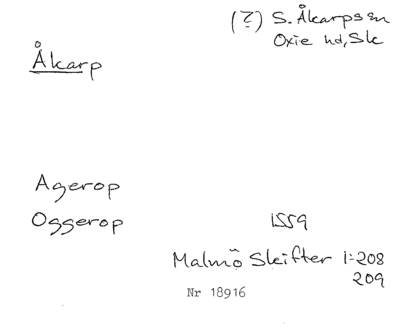 (?) S. Åkarps sn
Oxie hd, Sk
Åkarp
Agerop
Oggerop 1559
Malmö Skifter 1:208
209
Nr 18916